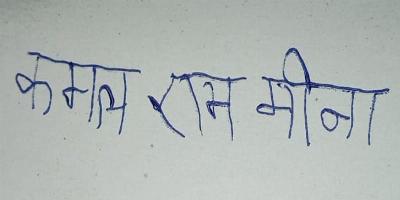 कमल राम मीना